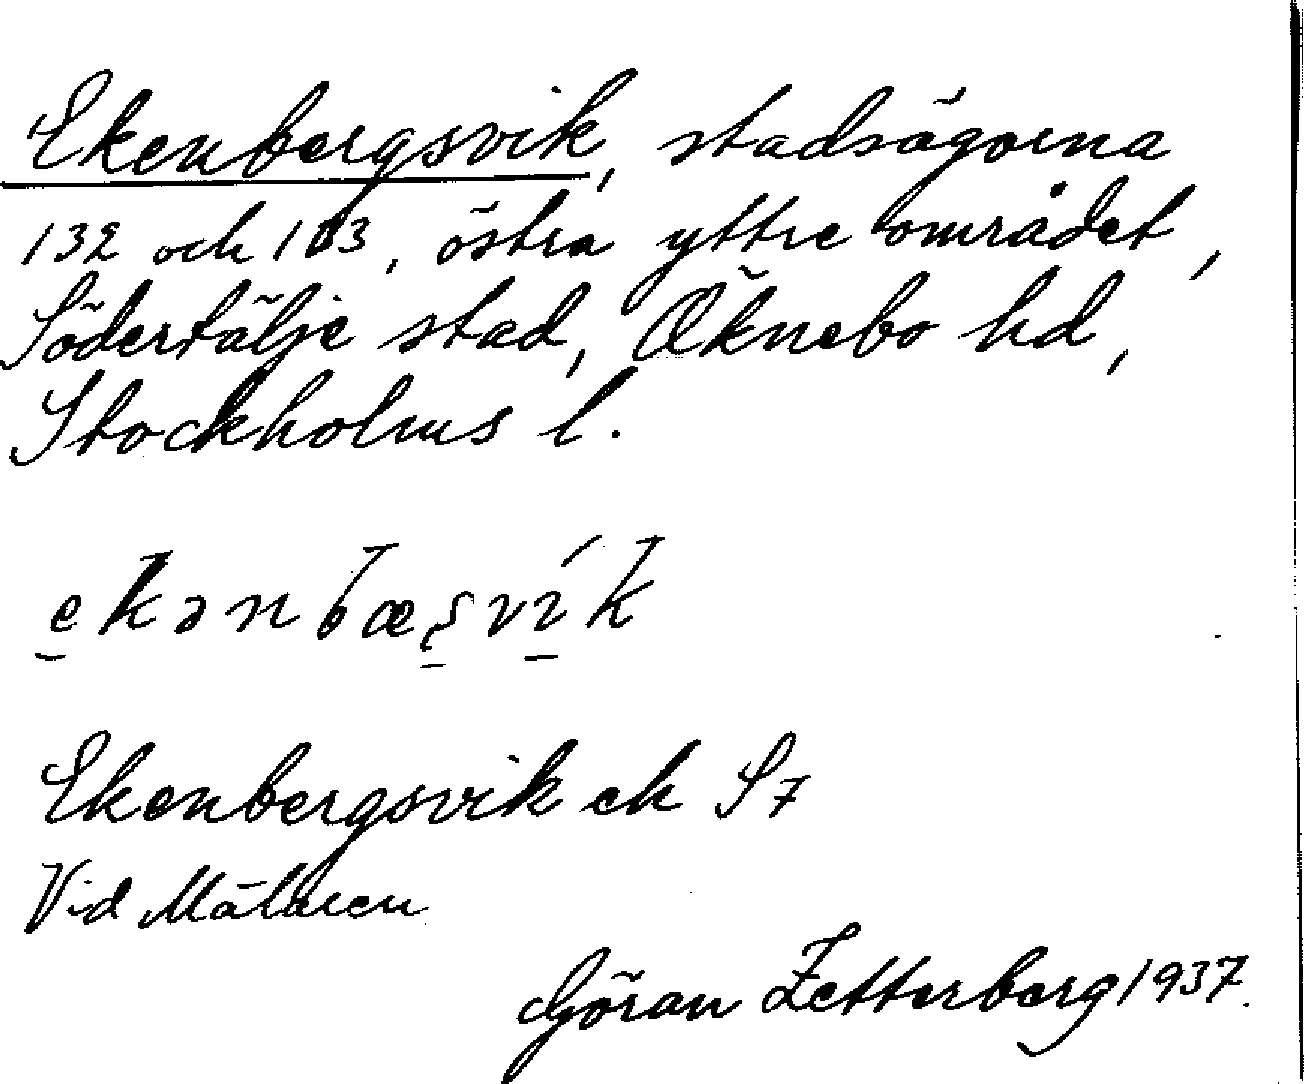 Ekenbergsvik, stadsägorna
132 och 103, östra yttre området,
Södertälje stad, Öknebo hd,
Stockholms l.
Ekenbergsvik ek S7
Vid Mälaren
Göran Zetterberg 1937.